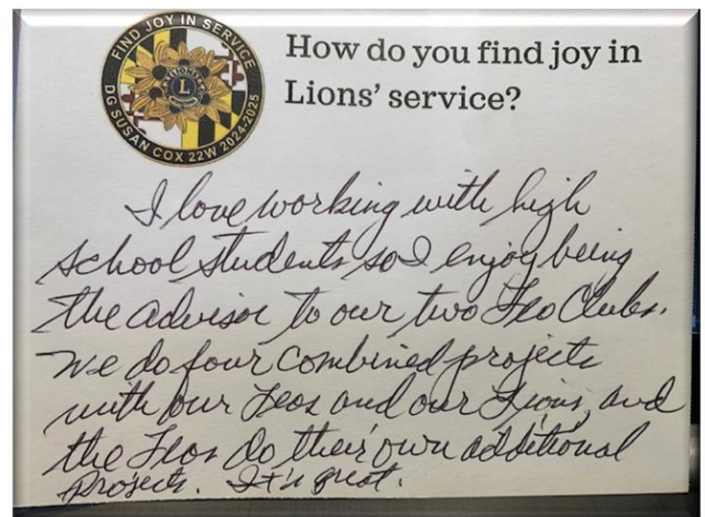 FIND JOY IN SERVICE
DG SUSAN COX 22W 2024-2025
LIONS
L
How do you find joy in
Lions' service?
I love working with high
school students so I enjoy being
the advisor to our two Leo Clubs.
We do four combined projects
with our Leos and our Lions, and
the Leos do their own additional
projects. It's great.